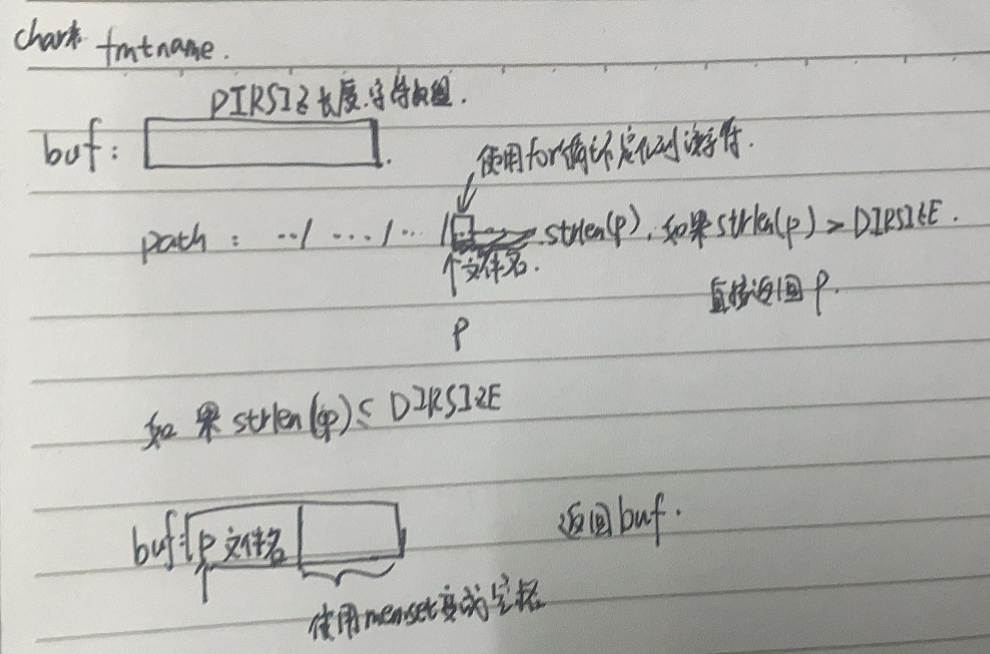 char* fmtname.
DIRSIZ长度.字符数组.
buf:
使用for循环定位到该字符.
path: ../.../... / strlen(p), 如果strlen(p) > DIRSIZE.
↑文件名.
直接返回p.
p
如果strlen(p)≤DIRSIZE
buf: p 文件名
返回buf.
使用memset变成空格